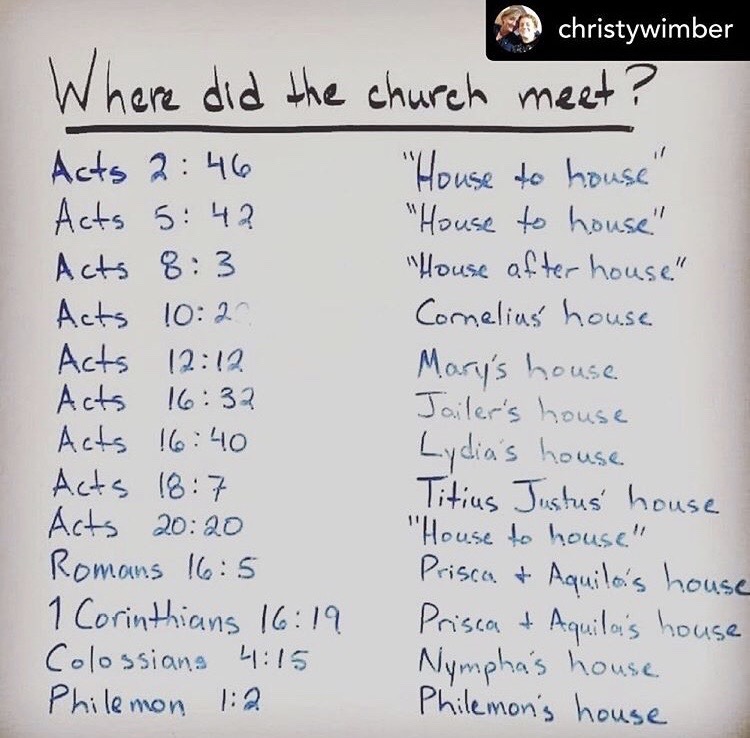 christywimber
Where did the church meet?
Acts 2:46 "House to house"
Acts 5:42 "House to house"
Acts 8:3 "House after house"
Acts 10: Cornelius' house
Acts 12:12 Mary's house
Acts 16:32 Jailer's house
Acts 16:40 Lydia's house
Acts 18:7 Titius Justus' house
Acts 20:20 "House to house"
Romans 16:5 Prisca + Aquila's house
1 Corinthians 16:19 Prisca + Aquila's house
Colossians 4:15 Nympha's house
Philemon 1:2 Philemon's house